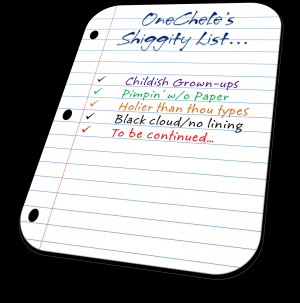 OneChele's
Shiggity List...
Childish Grown-ups
Pimpin' w/o Paper
Holier than thou types
Black cloud/no lining
To be continued...